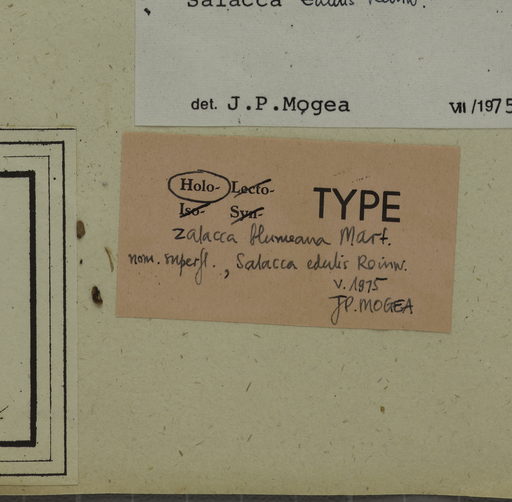 Salacca edulis Reinw.
det. J.P.Mogea VII/1975
Holo- Lecto-
Iso- Syn- TYPE
Zalacca blumeana Mart.
nom. superfl., Salacca edulis Reinw.
V. 1975
JP. MOGEA